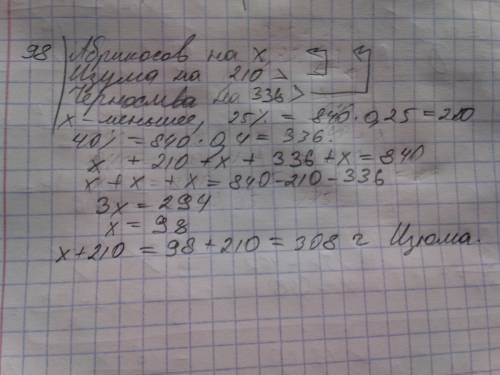 98 Абрикосов на х
Изума на 210 >
Чернослива на 336 >
х - меньшее, 25% = 840 · 0,25 = 210
40% = 840 · 0,4 = 336.
х + 210 + х + 336 + х = 840
х + х + х = 840 - 210 - 336
3х = 294
х = 98
х + 210 = 98 + 210 = 308 г Изюма.